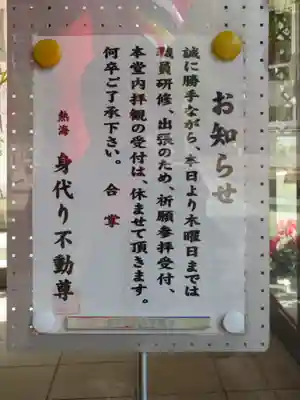 お知らせ
誠に勝手ながら、本日より木曜日までは
職員研修、出張のため、祈願参拝受付、
本堂内拝観の受付は、休ませて頂きます。
何卒ご了承下さい。 合掌
熱海 身代り不動尊